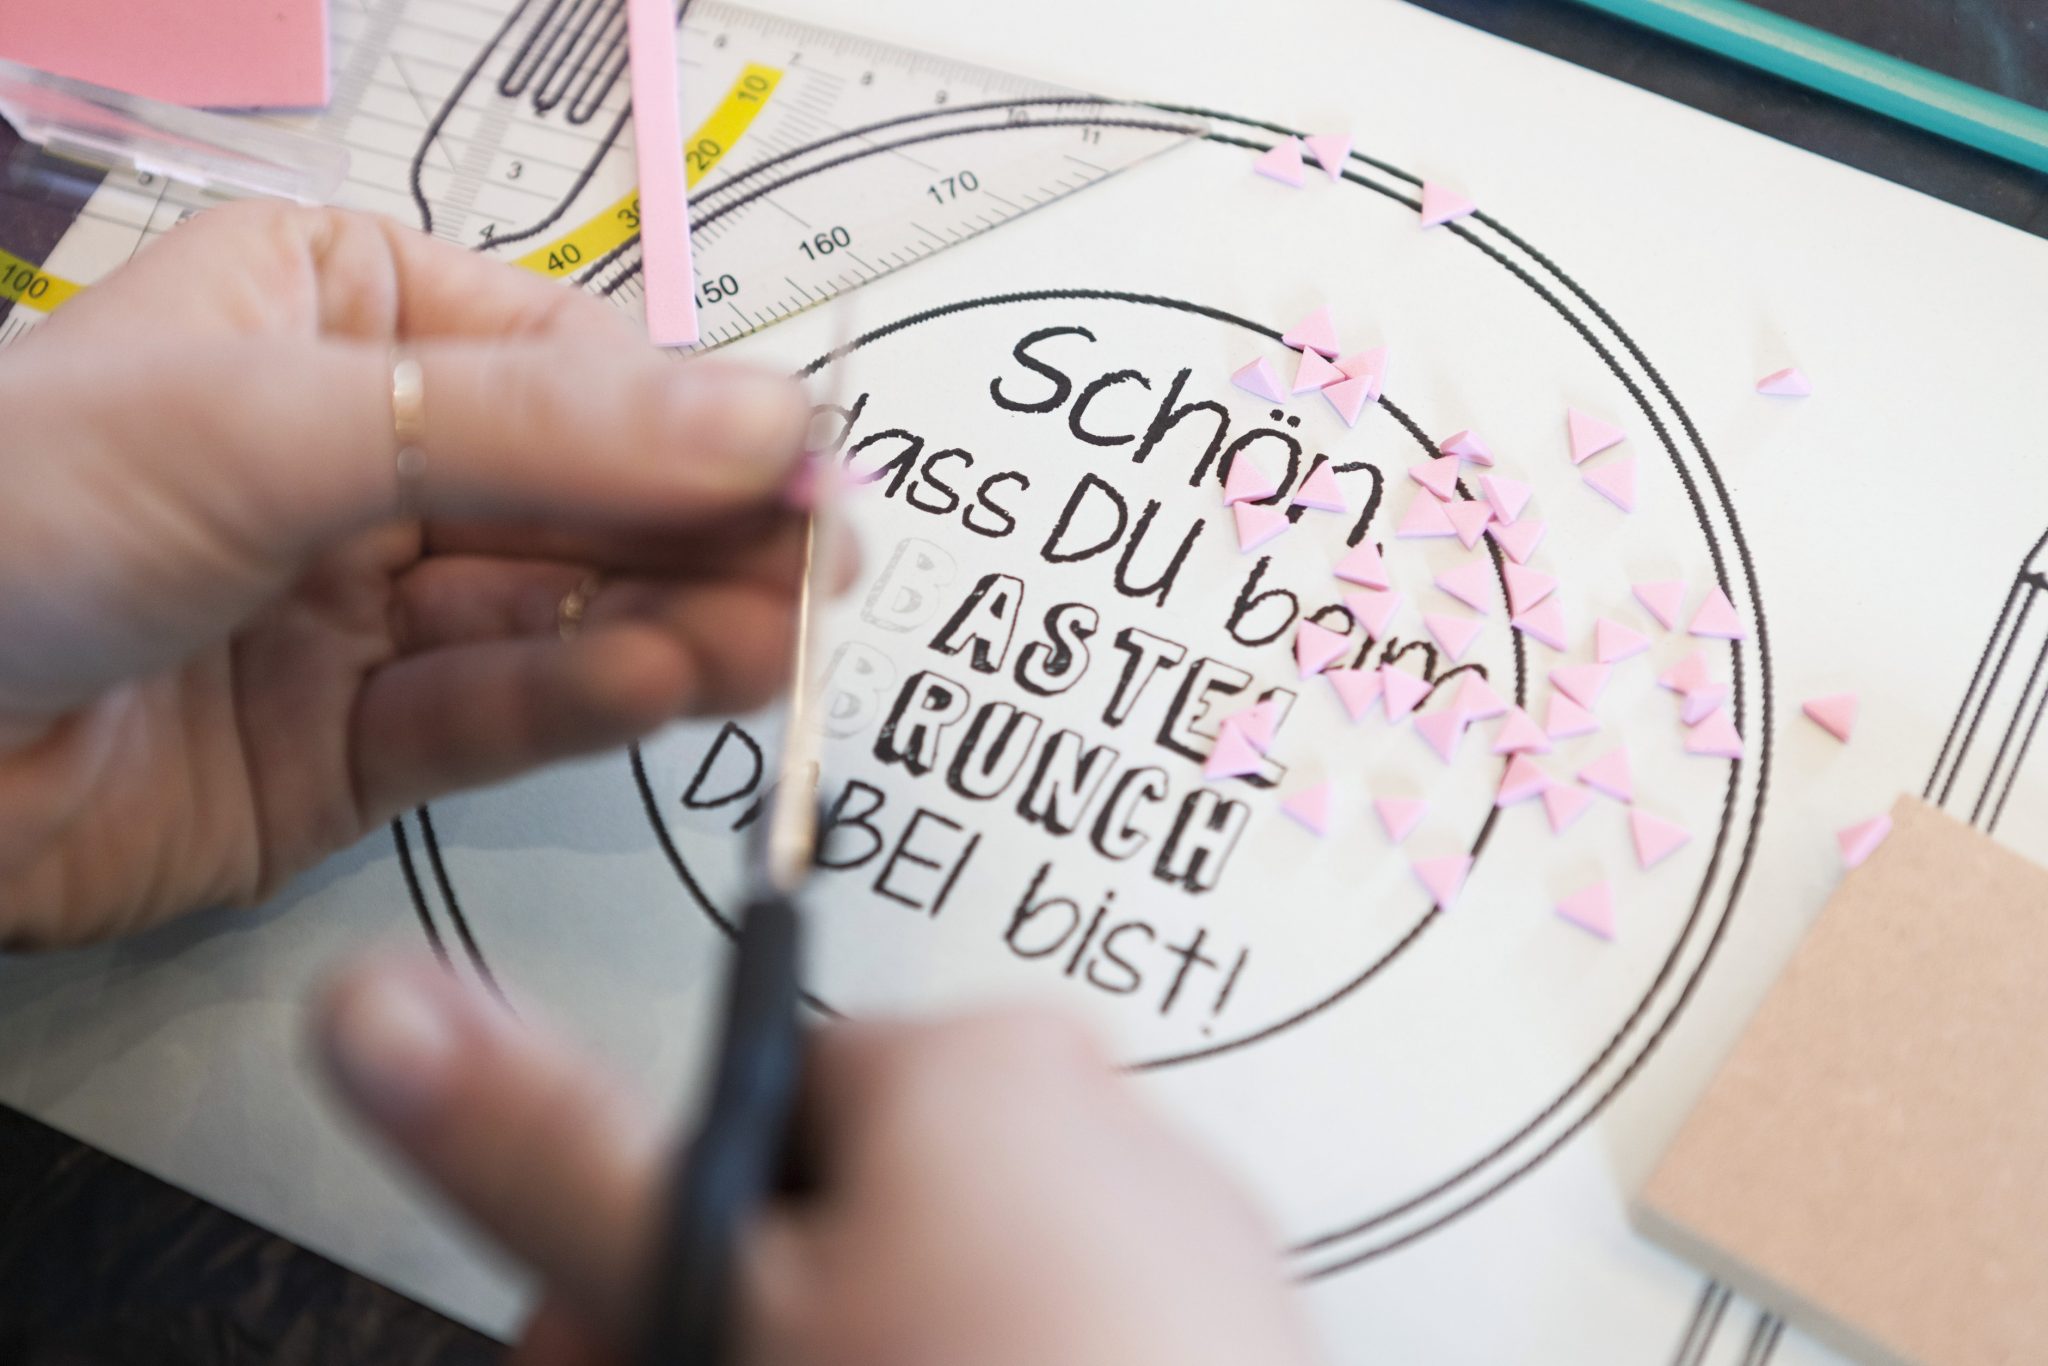 Schön,
dass DU beim
BASTEL
BRUNCH
DABEI bist!
6 7 8 9 10 11
10 20 30 40
100
150 160 170
3
4
5